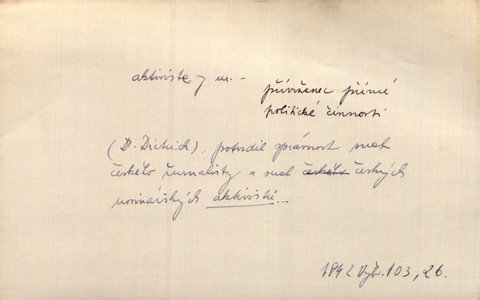 aktivista, -y m. -
přívrženec přímé
politické činnosti
(D. Dietrich).. potvrdil správnost snah
českého žurnalisty a snah ~~českého~~ českých
novinářských aktivistů...
1942 Výb. 103, 26.